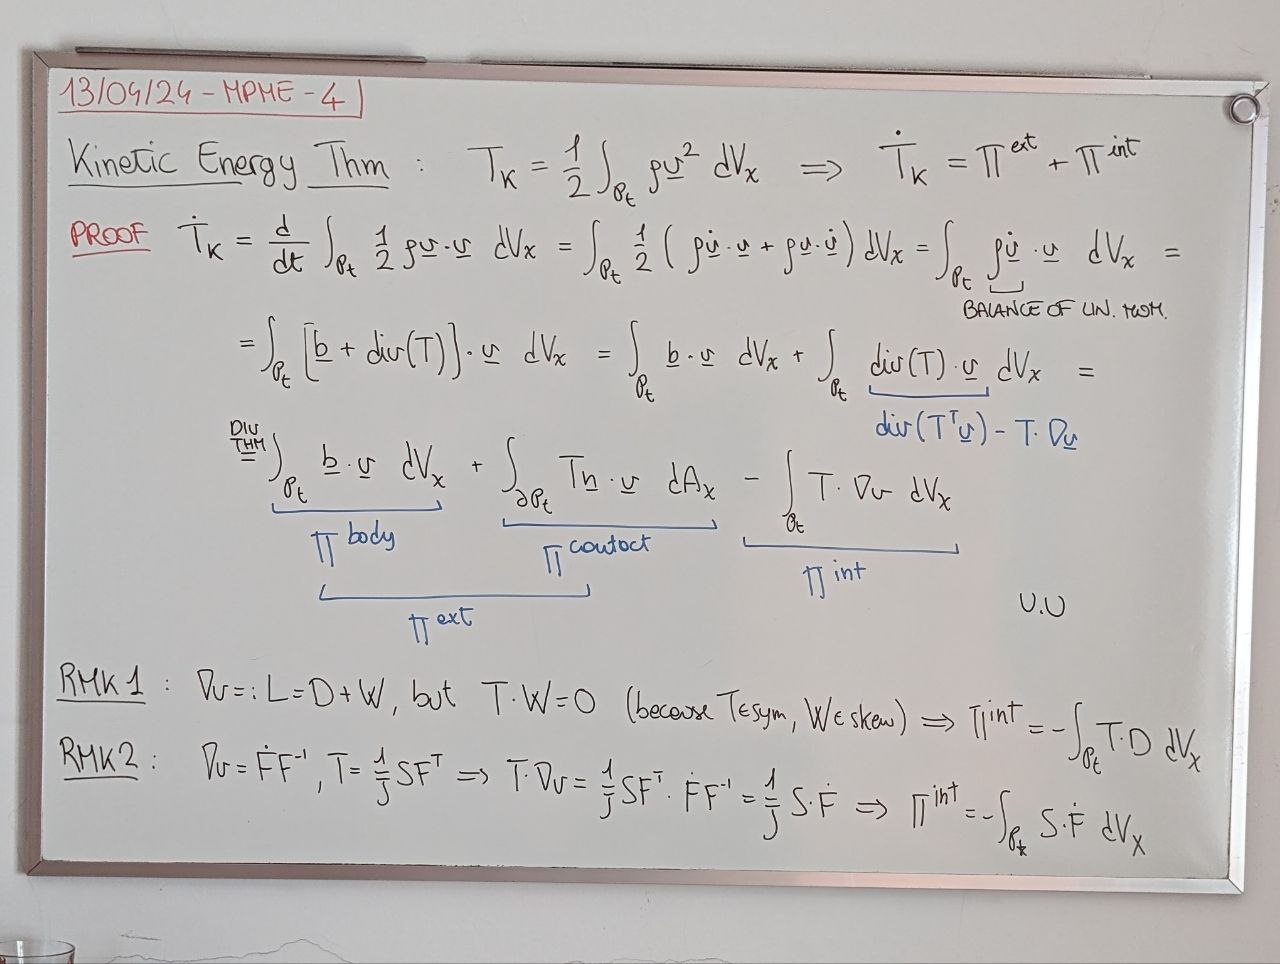 13/04/24 - MPME - 4
Kinetic Energy Thm : T_K = 1/2 ∫_{P_t} ρv̲² dV_x ⟹ Ṫ_K = Π^ext + Π^int
PROOF Ṫ_K = d/dt ∫_{P_t} 1/2 ρv̲·v̲ dV_x = ∫_{P_t} 1/2 (ρv̲̇·v̲ + ρv̲·v̲̇) dV_x = ∫_{P_t} ρv̲̇·v̲ dV_x =
BALANCE OF LIN. MOM.
= ∫_{P_t} [b̲ + div(T)]·v̲ dV_x = ∫_{P_t} b̲·v̲ dV_x + ∫_{P_t} div(T)·v̲ dV_x =
div(Tᵀv̲) - T·∇v̲
DIV THM = ∫_{P_t} b̲·v̲ dV_x + ∫_{∂P_t} Tn̲·v̲ dA_x - ∫_{P_t} T·∇v dV_x
Π^body Π^contact Π^int
Π^ext
U.U
RMK1 : ∇v =: L = D + W, but T·W = 0 (because T∈sym, W∈skew) ⟹ Π^int = -∫_{P_t} T·D dV_x
RMK2 : ∇v = ḞF⁻¹, T = 1/J SFᵀ ⟹ T·∇v = 1/J SFᵀ·ḞF⁻¹ = 1/J S·Ḟ ⟹ Π^int = -∫_{P_*} S·Ḟ dV_X